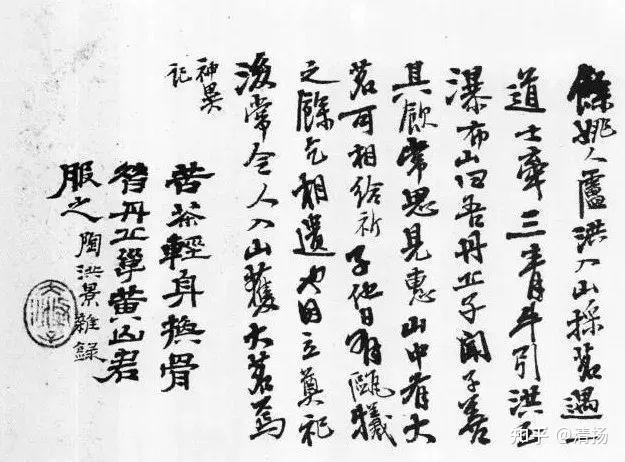 餘姚人盧洪入山採茗遇一
道士牽三青牛引洪至
瀑布山曰吾丹丘子聞子善
具飲常思見惠山中有大
茗可相給祈子他日有甌犧
之餘乞相遺也因立奠祀
後常令人入山獲大茗焉
神異
記
苦茶輕身換骨
昔丹丘黃山君
服之 陶洪景雜錄
知乎 @清扬